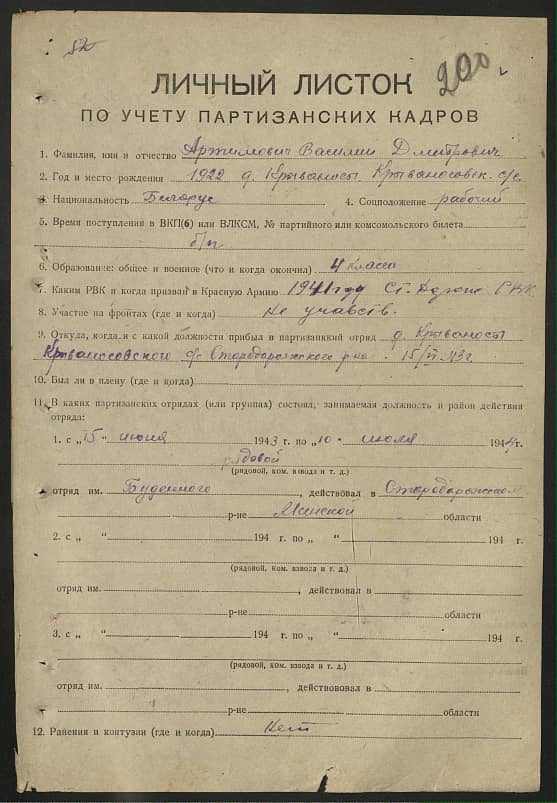 200
ЛИЧНЫЙ ЛИСТОК
ПО УЧЕТУ ПАРТИЗАНСКИХ КАДРОВ
1. Фамилия, имя и отчество Артимович Василий Дмитрович
2. Год и место рождения 1922 д. Крываносы, Крываносовск. с/с.
3. Национальность Беларус 4. Соцположение рабочий
5. Время поступления в ВКП(б) или ВЛКСМ, № партийного или комсомольского билета
б/п
6. Образование: общее и военное (что и когда окончил) 4 класса
7. Каким РВК и когда призван в Красную Армию 1941 году Ст. Дорож РВК.
8. Участие на фронтах (где и когда) не учавств.
9. Откуда, когда и с какой должности прибыл в партизанский отряд д. Крываносы
Крываносовского с/с Стародорожского р-на. 15/VI 43 г.
10. Был ли в плену (где и когда)
11. В каких партизанских отрядах (или группах) состоял, занимаемая должность и район действия
отряда:
1. с „15“ июня 1943 г. по „10“ июля 1944 г.
рядовой
(рядовой, ком. взвода и т. д.)
отряд им. Буденного, действовал в Стародорожском
р-не Минской области
2. с „ “ 194 г. по „ “ 194 г.
(рядовой, ком. взвода и т. д.)
отряд им. , действовал в
р-не области
3. с „ “ 194 г. по „ “ 194 г.
(рядовой, ком. взвода и т. д.)
отряд им. , действовал в
р-не области
12. Ранения и контузии (где и когда) Нет